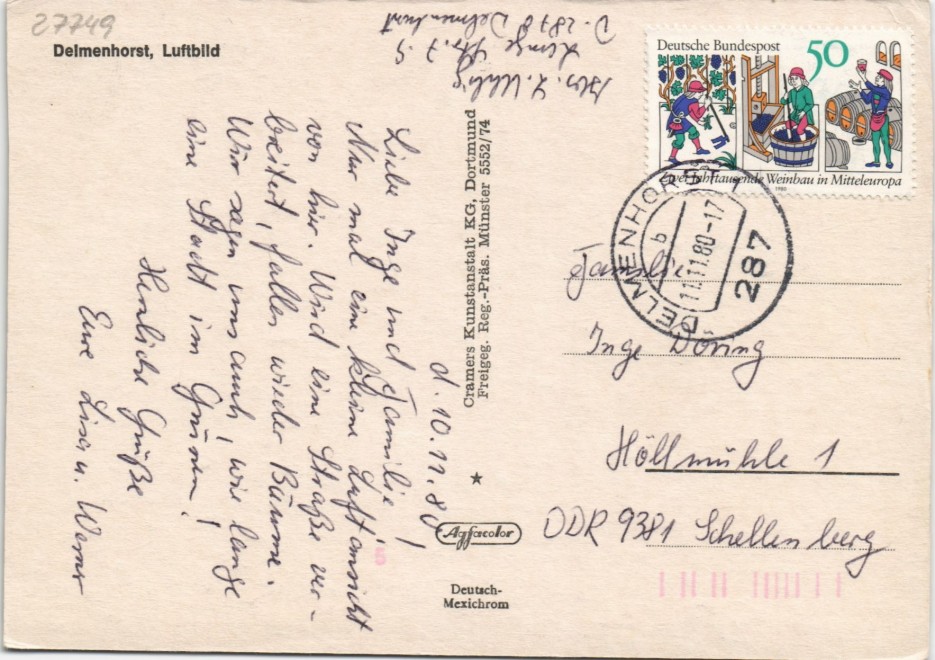 27749
Delmenhorst, Luftbild
Abs. L. Uhlig
Lange Str. 7 - 9
D. 2870 Delmenhorst
d. 10.11.80
Liebe Inge und Familie!
Nur mal eine kleine Luftansicht
von hier. Wird eine Straße ver-
breitert, fallen wieder Bäume.
Wir sagen uns auch, wie lange
eine Stadt im Grünen!
Herzliche Grüße
Eure Lisa u. Werner
Cramers Kunstanstalt KG, Dortmund
Freigeg. Reg.-Präs. Münster 5552/74
Agfacolor
5
Deutsch-
Mexichrom
Deutsche Bundespost 50
Zwei Jahrtausende Weinbau in Mitteleuropa
1980
DELMENHORST 1
b
11.11.80-17
287
Familie
Inge Döring
Höllmühle 1
DDR 9381 Schellenberg